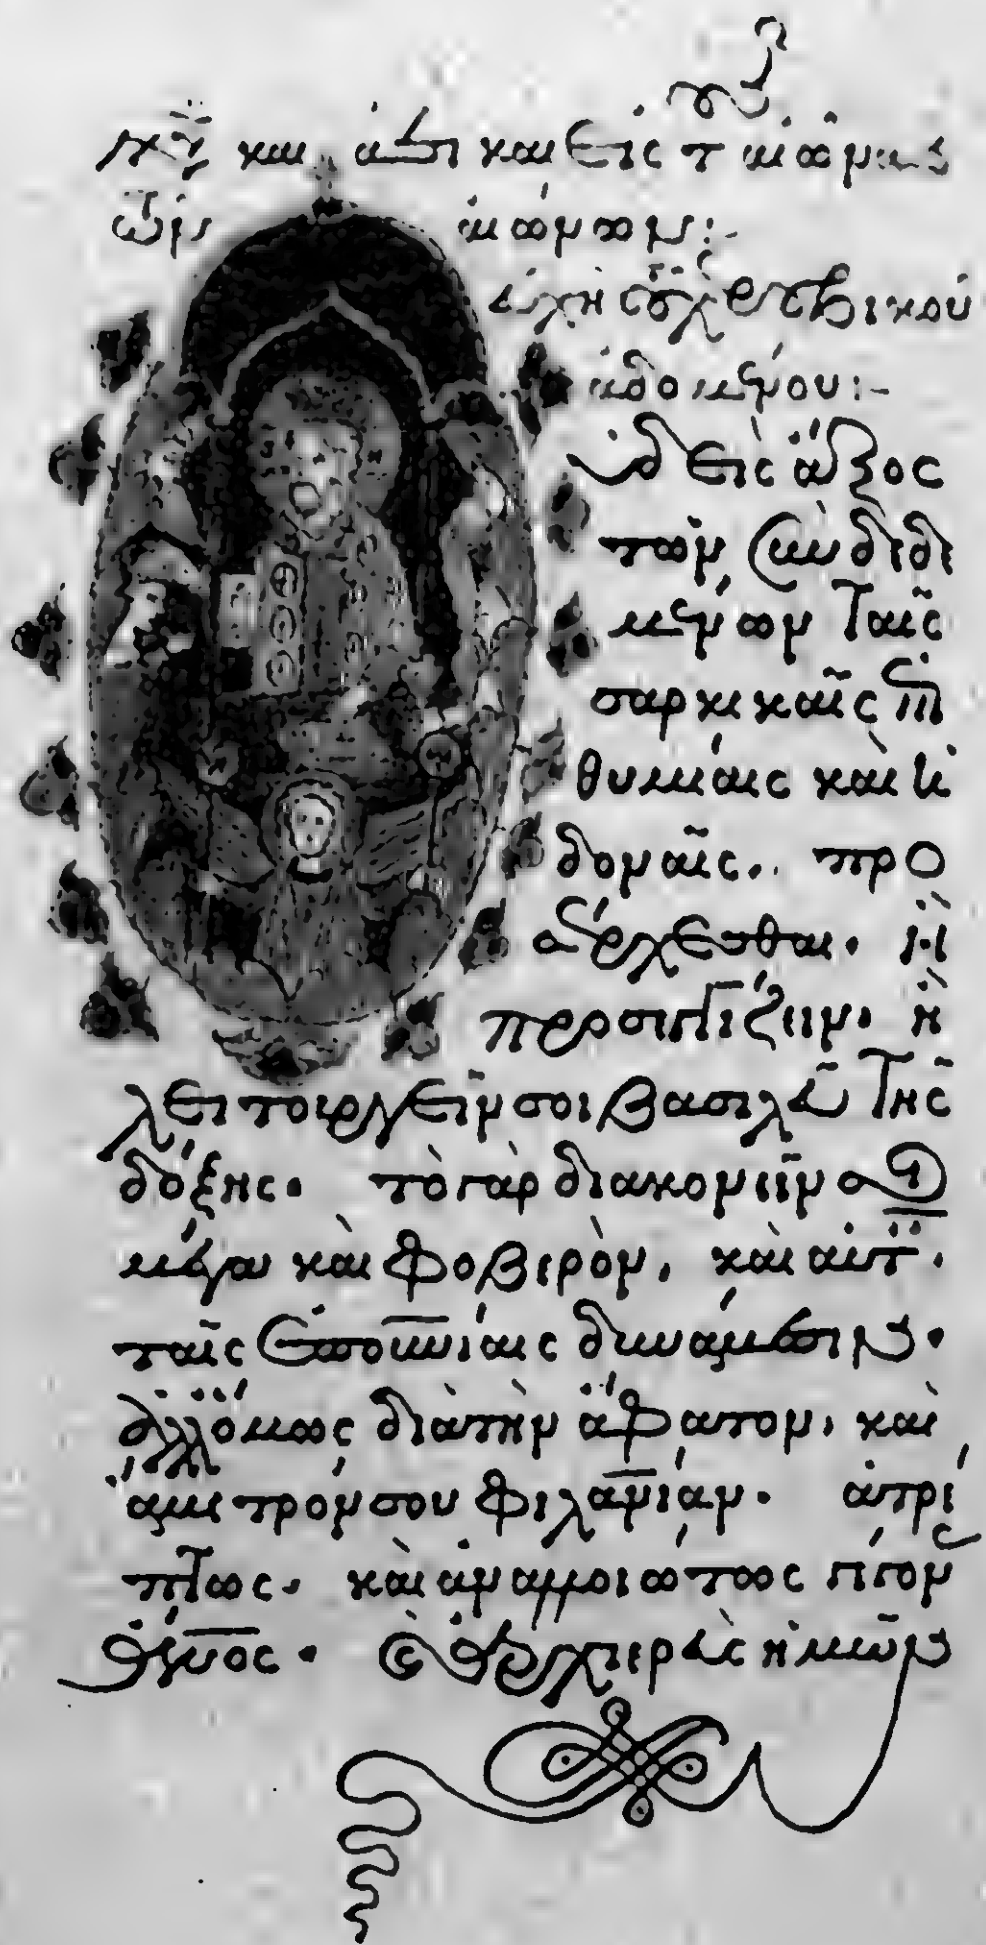 καὶ ἀεὶ καὶ εἰς τ αἰῶνας
τῶν αἰώνων:-
εὐχὴ τοῦ χερουβικοῦ
ᾀδομένου:-
Οὐδεὶς ἄξιος
τῶν συνδεδε
μένων ταῖς
σαρκικαῖς ἐπι
θυμίαις καὶ ἡ
δοναῖς. προ
σέρχεσθαι. ἢ
προσεγγίζειν. ἢ
λειτουργεῖν σοι βασιλεῦ τῆς
δόξης. τὸ γὰρ διακονεῖν σοι
μέγα καὶ φοβερὸν, καὶ αὐτ.
ταῖς ἐπουνίαις δυνάμεσιν.
ἀλλ' ὅμως διὰ τὴν ἄφατον, καὶ
ἄμετρόν σου φιλανίαν. ἀτρέ
πτως. καὶ ἀναλλοιώτως γέγον
ἄνος. καὶ ἀρχιερεὺς ἡμῶν